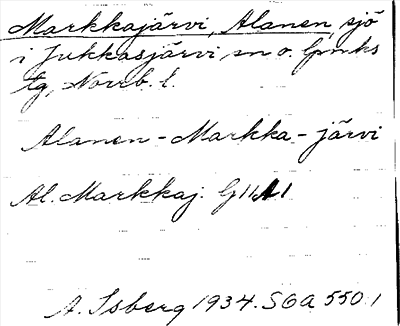 Markkajärvi, Alanen, sjö
i Jukkasjärvi sn o. lpmks
tg, Norrb. l.
Alanen-Markka-järvi
Al. Markkaj. G11A1
A. Isberg 1934. SOA 550:1